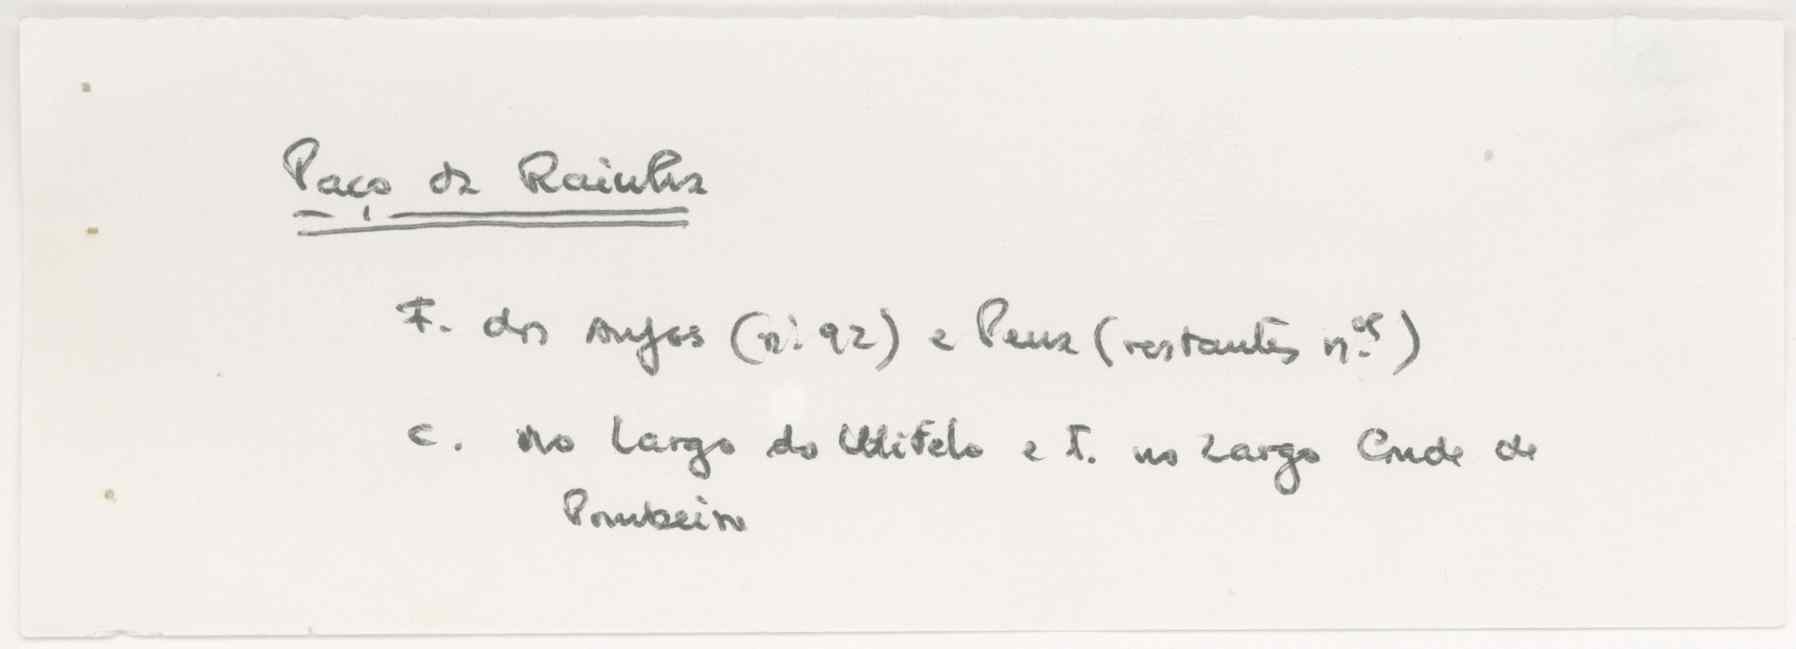 Paço da Rainha
F. dos Anjos (nº 92) e Pena (restantes n.os)
C. no Largo do Mitelo e T. no Largo Conde de
Pombeiro